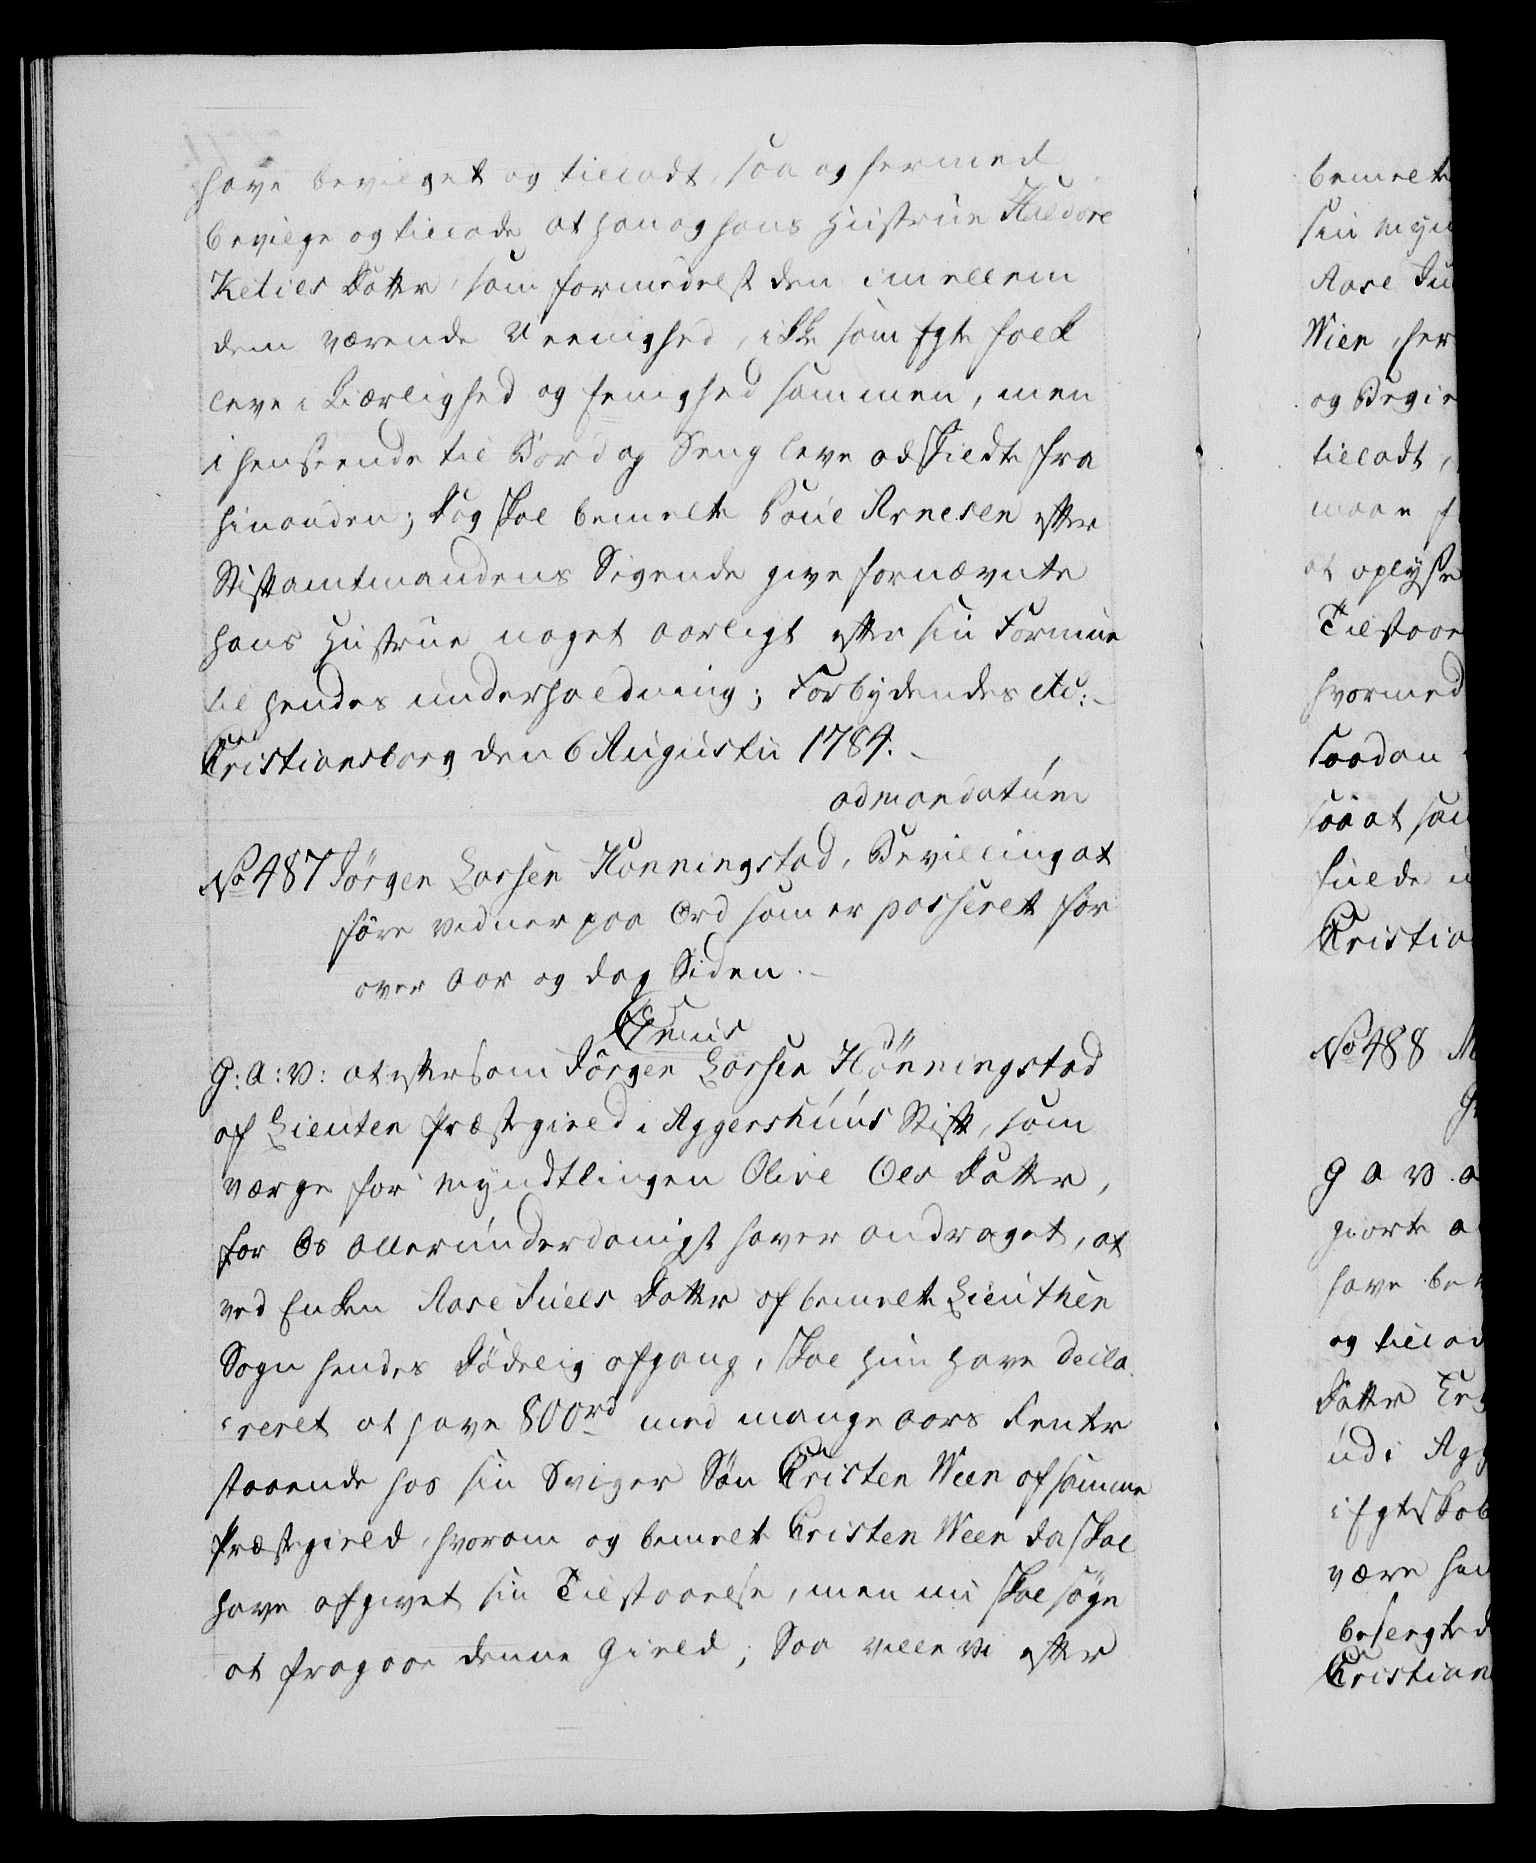 have bevilget og tilladt, saa og hermed
bevilge og tillade at han og hans Hustrue Haldore
Ketiels Datter, som formedelst den imellem
dem værende Ueenighed, ikke som Egte folck
leve i Kiærlighed og Eenighed sammen, men
i henseende til Bord og Seng leve adskildte fra
hinanden; Dog skal bemelte Poul Arnesen efter
Stiftamtmandens Sigende give fornævnte
hans Hustrue noget aarligt efter sin Formue
til hendes underholdning; Forbydendes etc:
Christiansborg den 6 Augustii 1784.
ad mandatum
No 487 Jörgen Larsen Hönningstad, Bevilling at
före vidner paa Ord som er passeret for
over Aar og dag Siden.
Gratis
G: A: V: at eftersom Jörgen Larsen Hönningstad
af Lieuten Præstegield i Aggershuus Stift, som
værge for Myndtlingen Olive Ols Datter,
for Os allerunderdanigst haver andraget, at
ved Enken Aase Juels Datter af bemelte Lieuthen
Sogn hendes Dödelig afgang, skal hun have decla-
reret at have 800rd med mange aars Renter
staaende hos sin Sviger Sön Christen Ween af samme
Præstegield, hvorom og bemelt Christen Ween da skal
have afgivet sin Tilstaaelse, men nu skal söge
at fragaae denne Gield; Saa ville Vi efter
bemelte
sin Myn
Aase Ju
Wien, her
og Begie
tilladt,
maae f
at oplyse
Tilstaae
hvormed
saadan
saa at saa
fulde
Christia
No 488 M
G A V. a
giorte a
have be
og tillad
Datter
udi Agg
i Egteskab
være ha
besengted
Christian